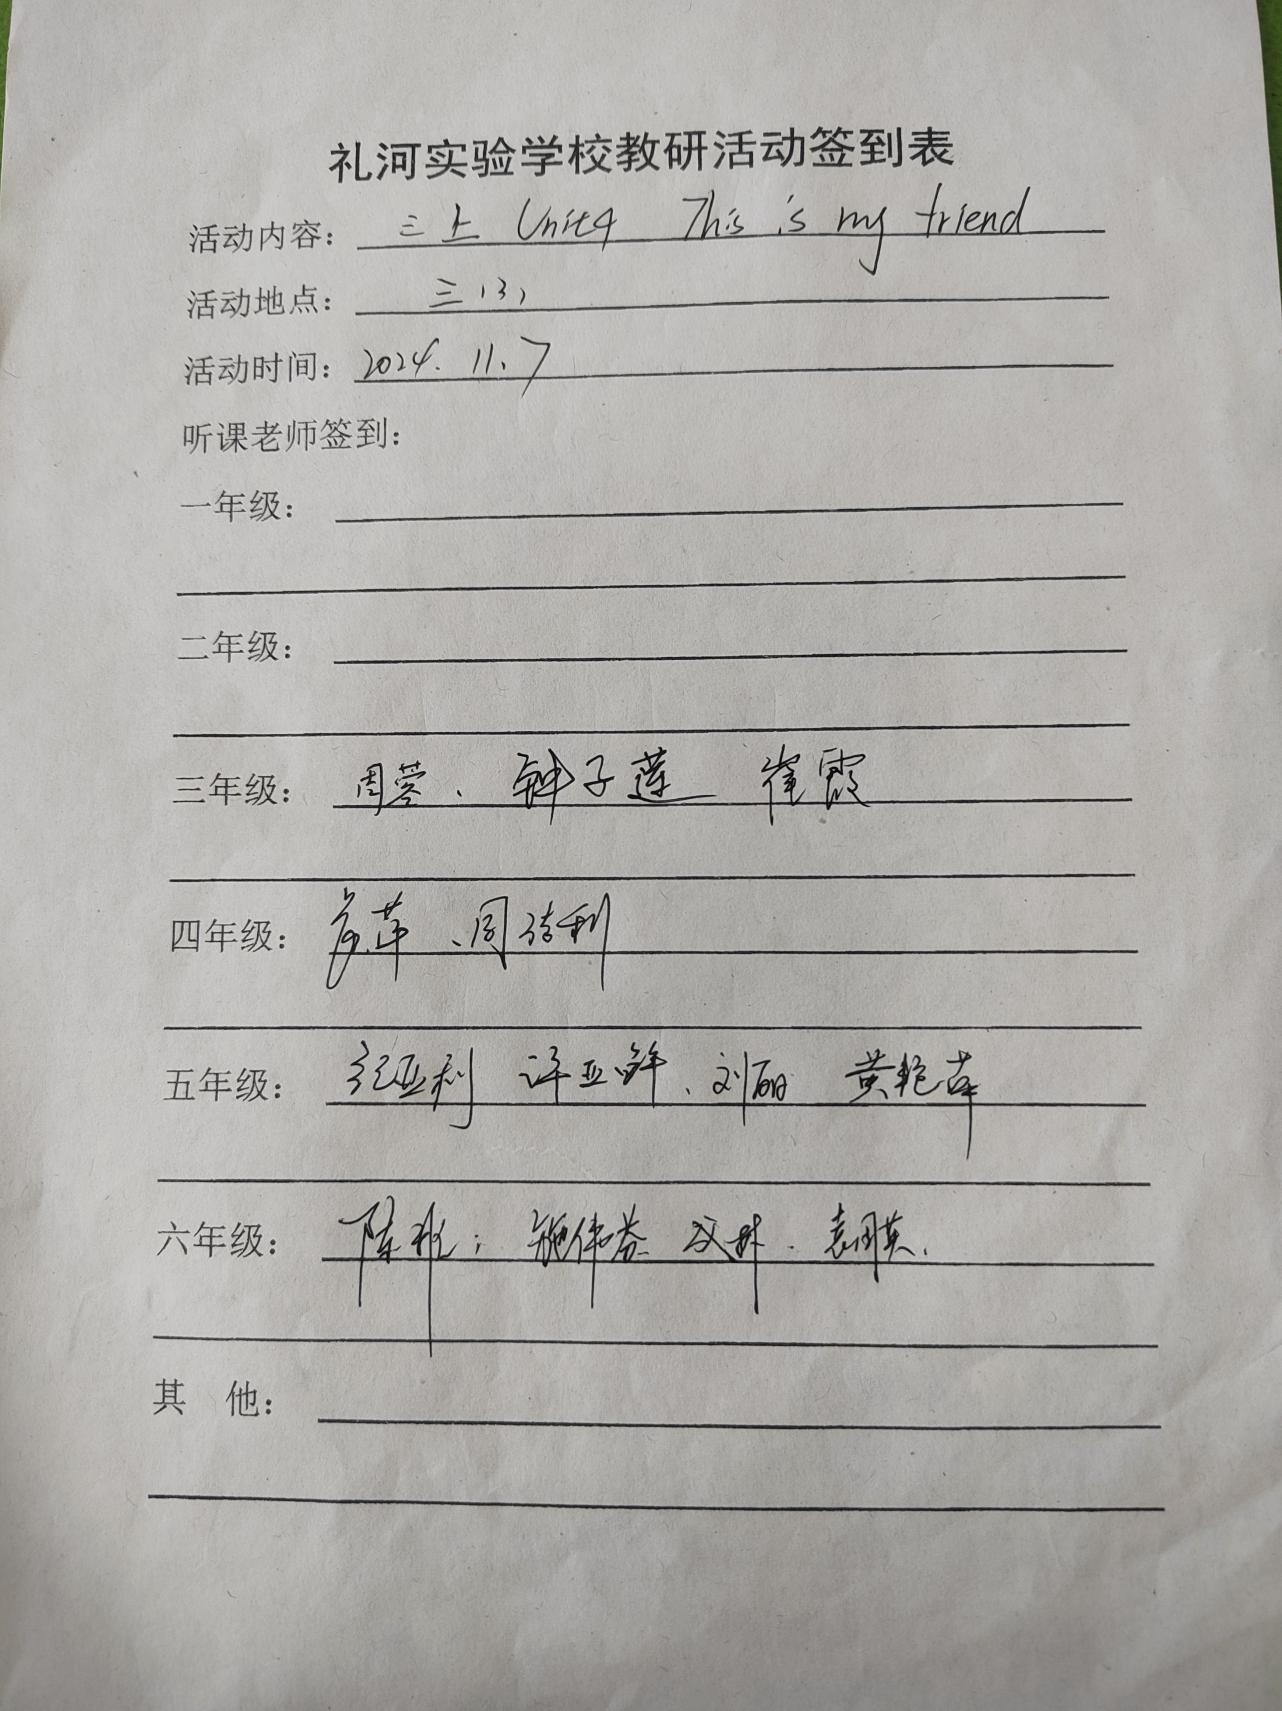 礼河实验学校教研活动签到表
活动内容：三上 Unit4 This is my friend
活动地点：三(3)
活动时间：2024.11.7
听课老师签到：
一年级：
二年级：
三年级：周蓉、钟子莲 崔霞
四年级：
五年级：刘丽 黄艳萍
六年级：施伟芬
其 他：